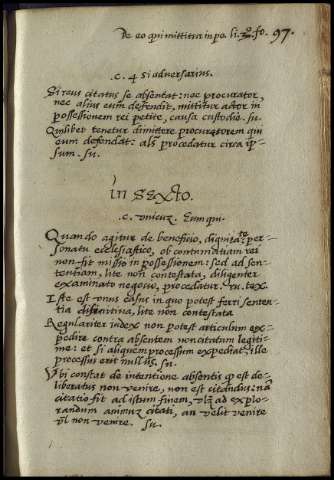 De eo qui mittitur in po. li. 2. fo. 97.
.c. 4 Si adversarius.
Si reus citatus se absentat: nec procurator,
nec alius eum defendit, mittitur actor in
possessionem rei petite, causa custodie. su.
Quilibet tenetur dimittere procuratorem qui
eum defendat: alr procedatur circa ip-
sum. su.
In Sexto.
c. unicuz. Eum qui.
Quando agitur de beneficio, dignitate, per-
sonatu ecclesiastico, ob contumatiam rei
non fit missio in possessionem: sed ad sen-
tentiam, lite non contestata, diligenter
examinato negocio, proceditur. tex.
Iste est unus casus in quo potest ferri senten-
tia difinitiva, lite non contestata
Regulariter iudex non potest articulum ex-
pedire contra absentem non citatum legiti-
me: et si aliquem processum expediat, ille
processus erit nullus. su.
Ubi constat de intentione absentis q est de-
liberatus non venire, non est citandus: nã
citatio fit ad istum finem, ad explo-
randum animuz citati, an velit venire
vl non venire. su.